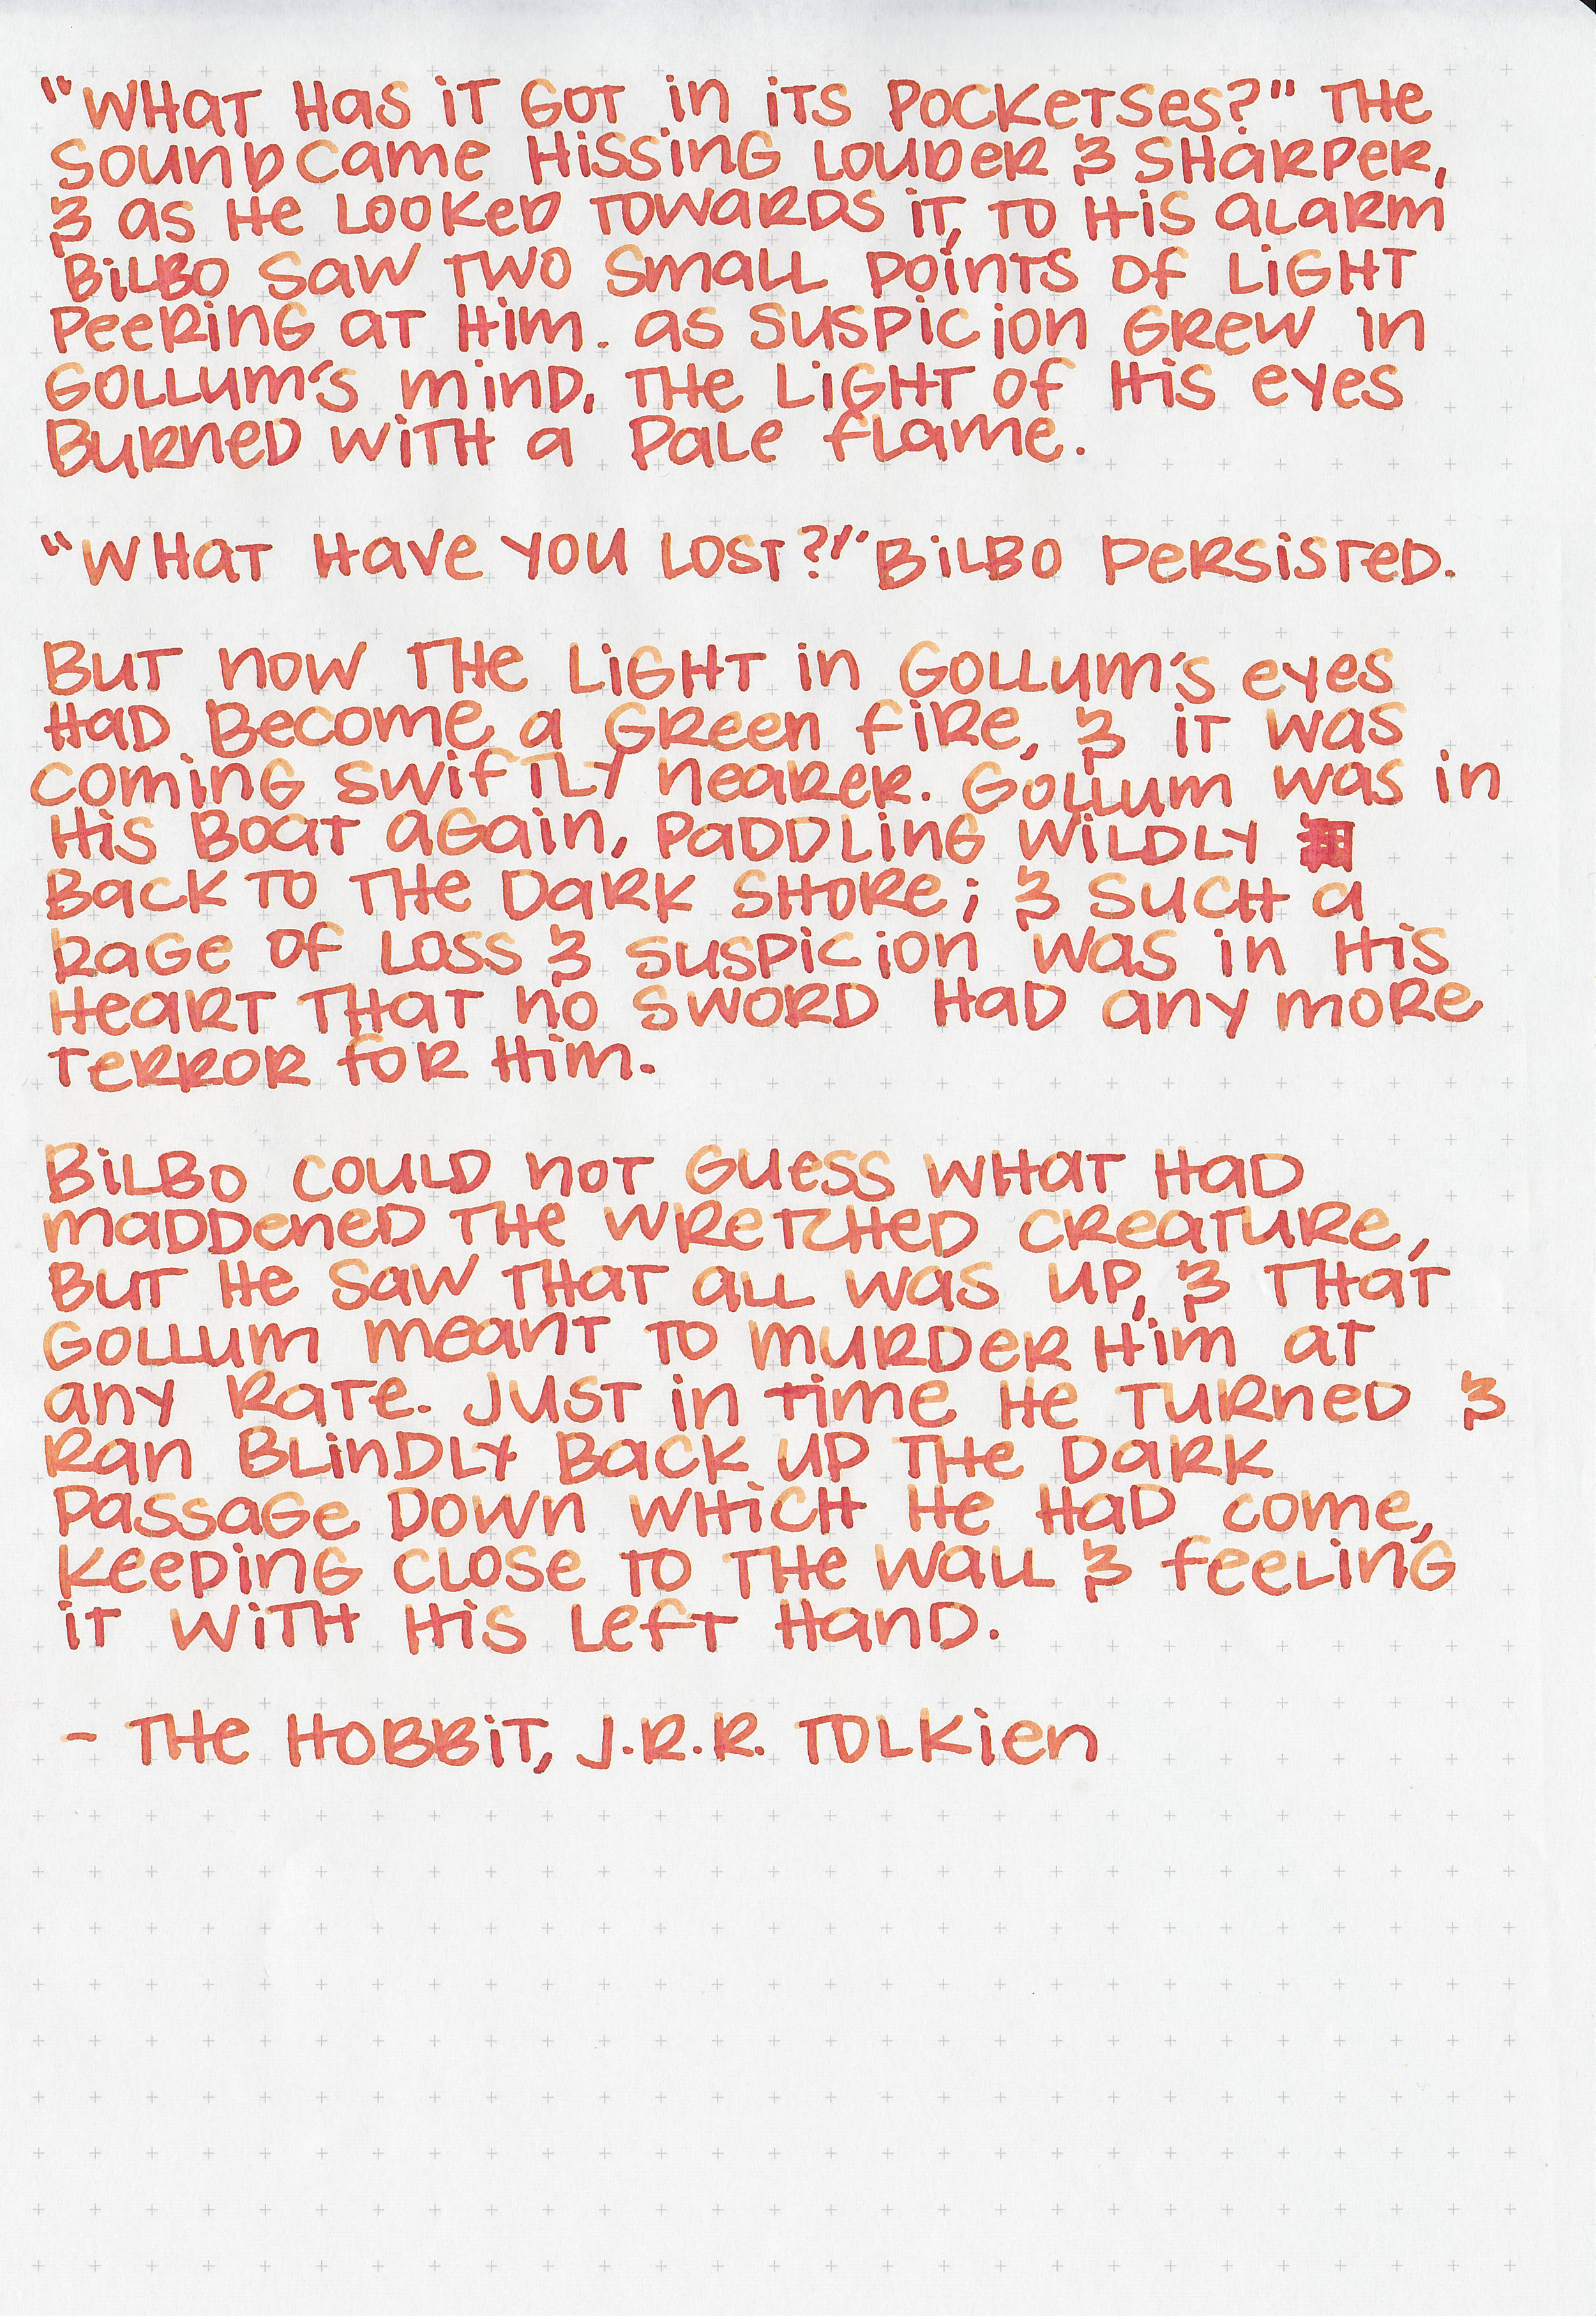 "What has it got in its pocketses?" The
sound came hissing louder & sharper,
& as he looked towards it, to his alarm
Bilbo saw two small points of light
peering at him. as suspicion grew in
Gollum's mind, the light of his eyes
burned with a pale flame.
"What have you lost?" Bilbo persisted.
But now the light in Gollum's eyes
had become a green fire, & it was
coming swiftly nearer. Gollum was in
his boat again, paddling wildly
back to the dark shore; & such a
rage of loss & suspicion was in his
heart that no sword had any more
terror for him.
Bilbo could not guess what had
maddened the wretched creature,
but he saw that all was up, & that
Gollum meant to murder him at
any rate. Just in time he turned &
ran blindly back up the dark
passage down which he had come,
keeping close to the wall & feeling
it with his left hand.
- The Hobbit, J.R.R. Tolkien